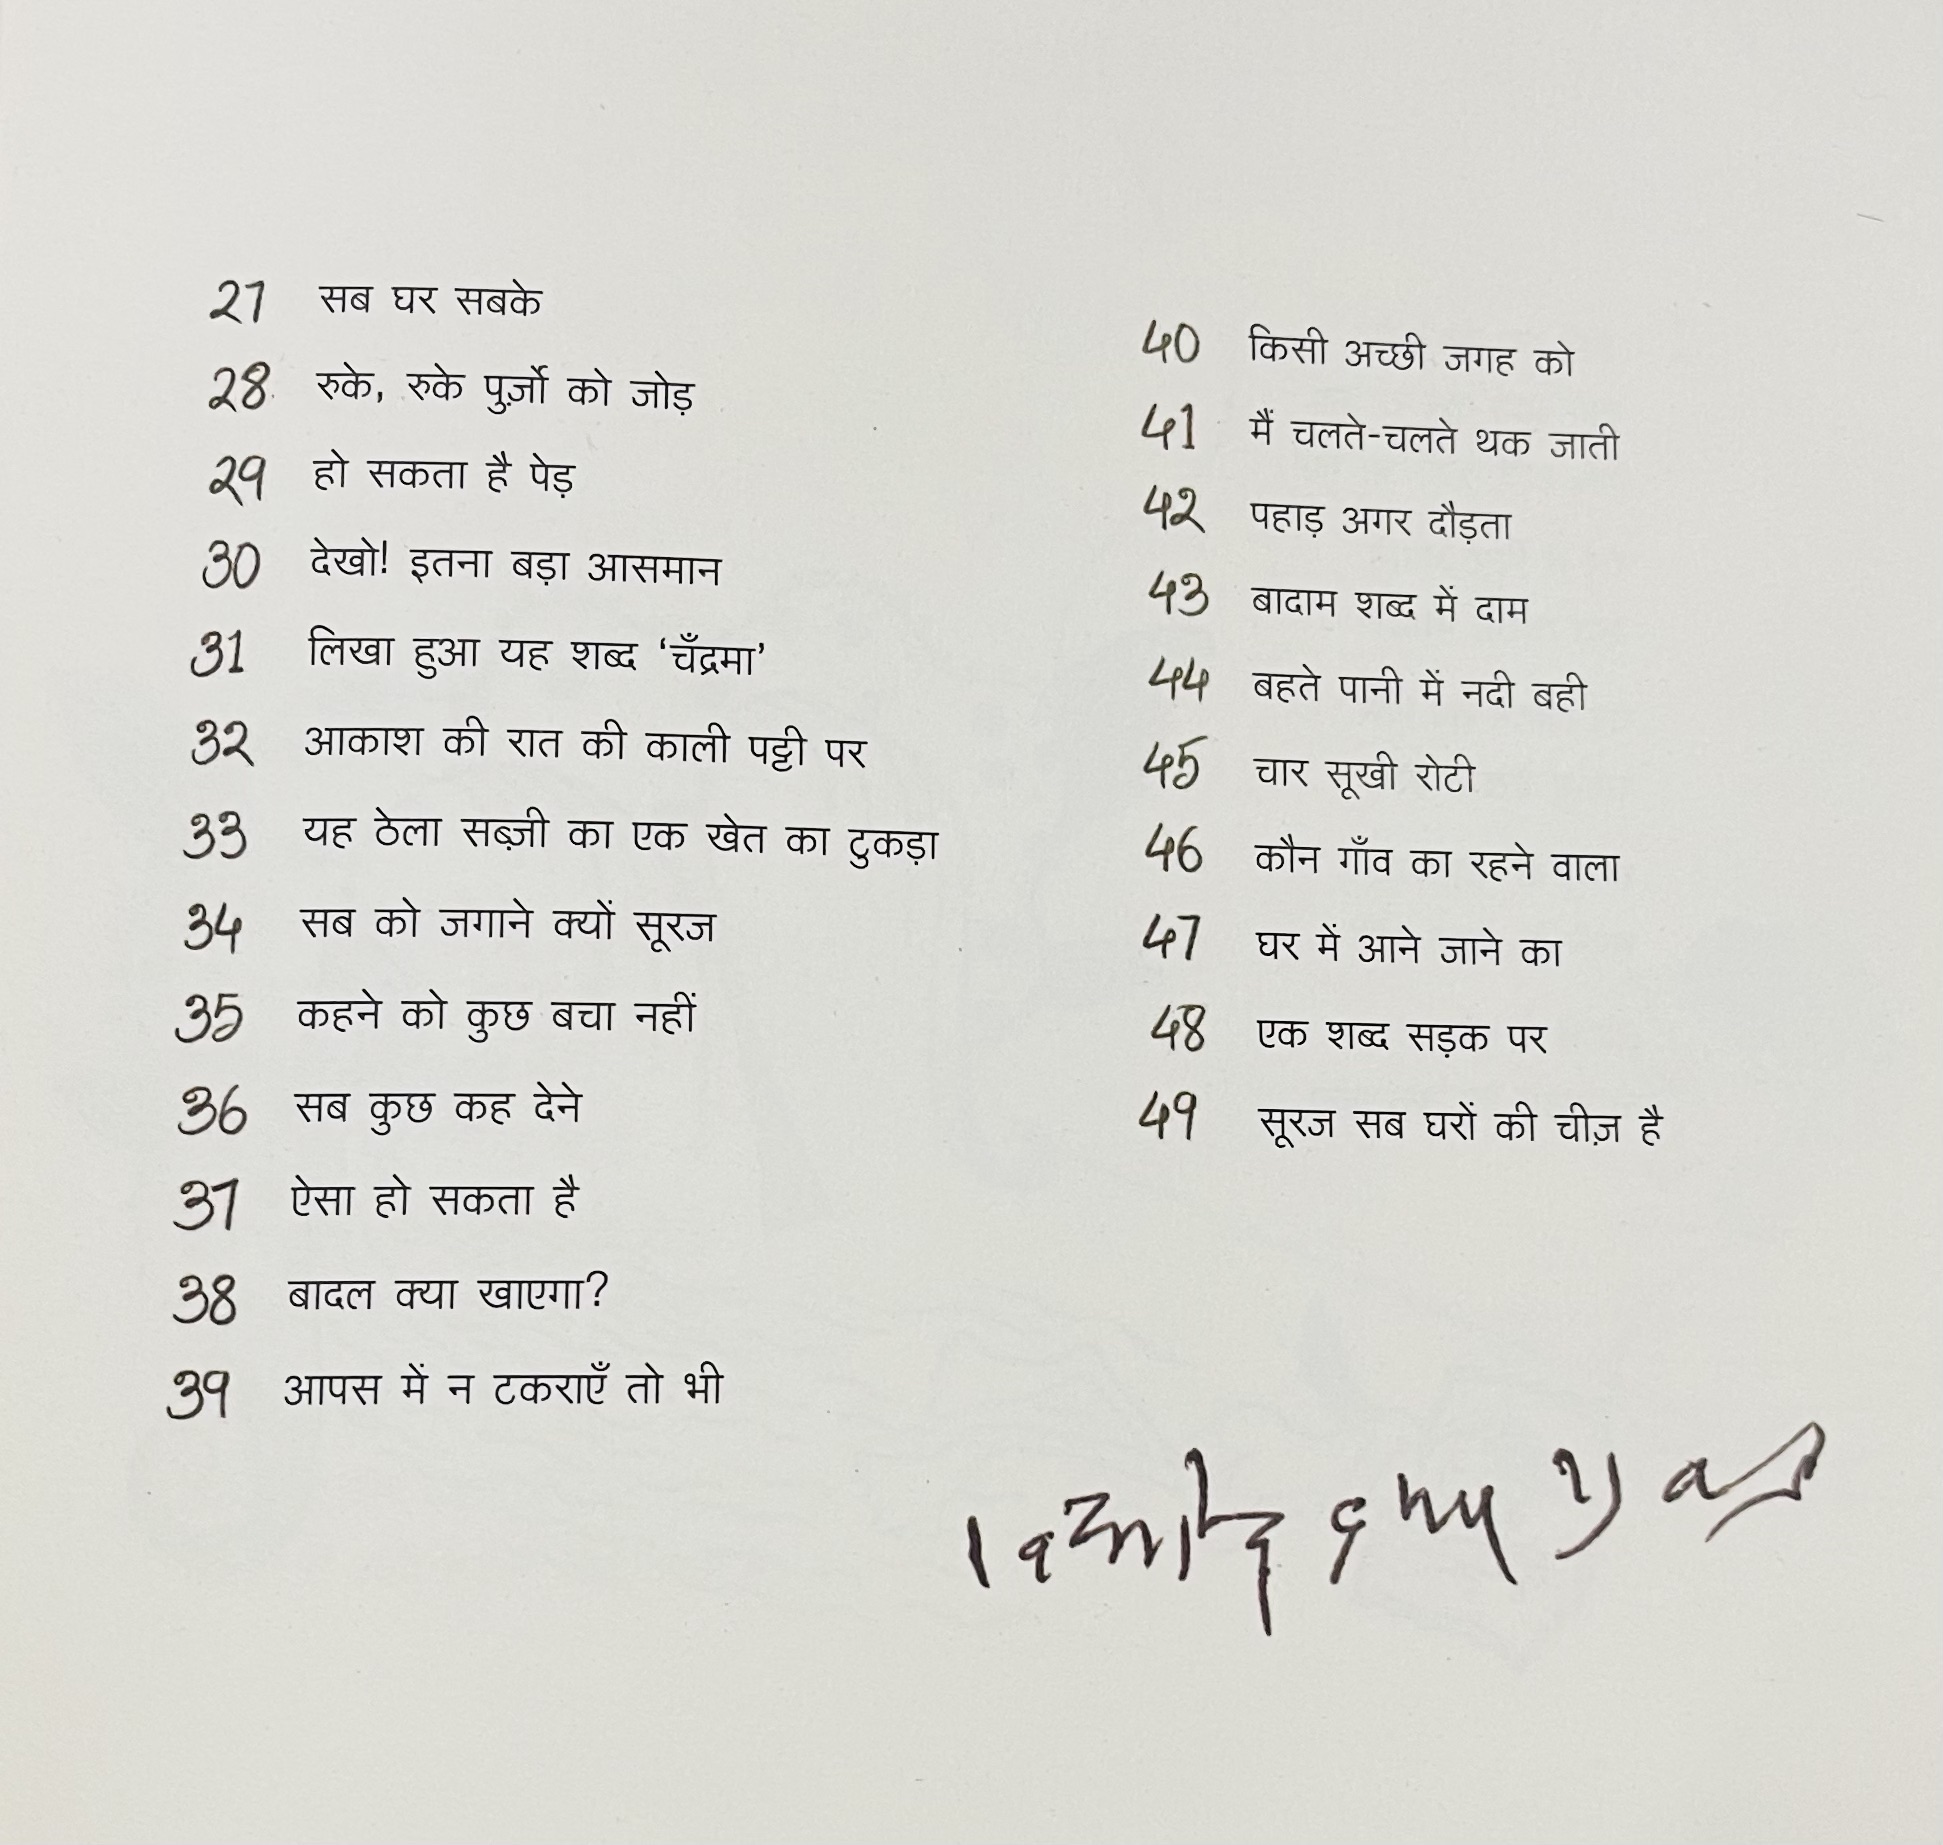 27 सब घर सबके
28 रुके, रुके पुर्ज़ों को जोड़
29 हो सकता है पेड़
30 देखो! इतना बड़ा आसमान
31 लिखा हुआ यह शब्द ‘चँद्रमा’
32 आकाश की रात की काली पट्टी पर
33 यह ठेला सब्ज़ी का एक खेत का टुकड़ा
34 सब को जगाने क्यों सूरज
35 कहने को कुछ बचा नहीं
36 सब कुछ कह देने
37 ऐसा हो सकता है
38 बादल क्या खाएगा?
39 आपस में न टकराएँ तो भी
40 किसी अच्छी जगह को
41 मैं चलते-चलते थक जाती
42 पहाड़ अगर दौड़ता
43 बादाम शब्द में दाम
44 बहते पानी में नदी बही
45 चार सूखी रोटी
46 कौन गाँव का रहने वाला
47 घर में आने जाने का
48 एक शब्द सड़क पर
49 सूरज सब घरों की चीज़ है